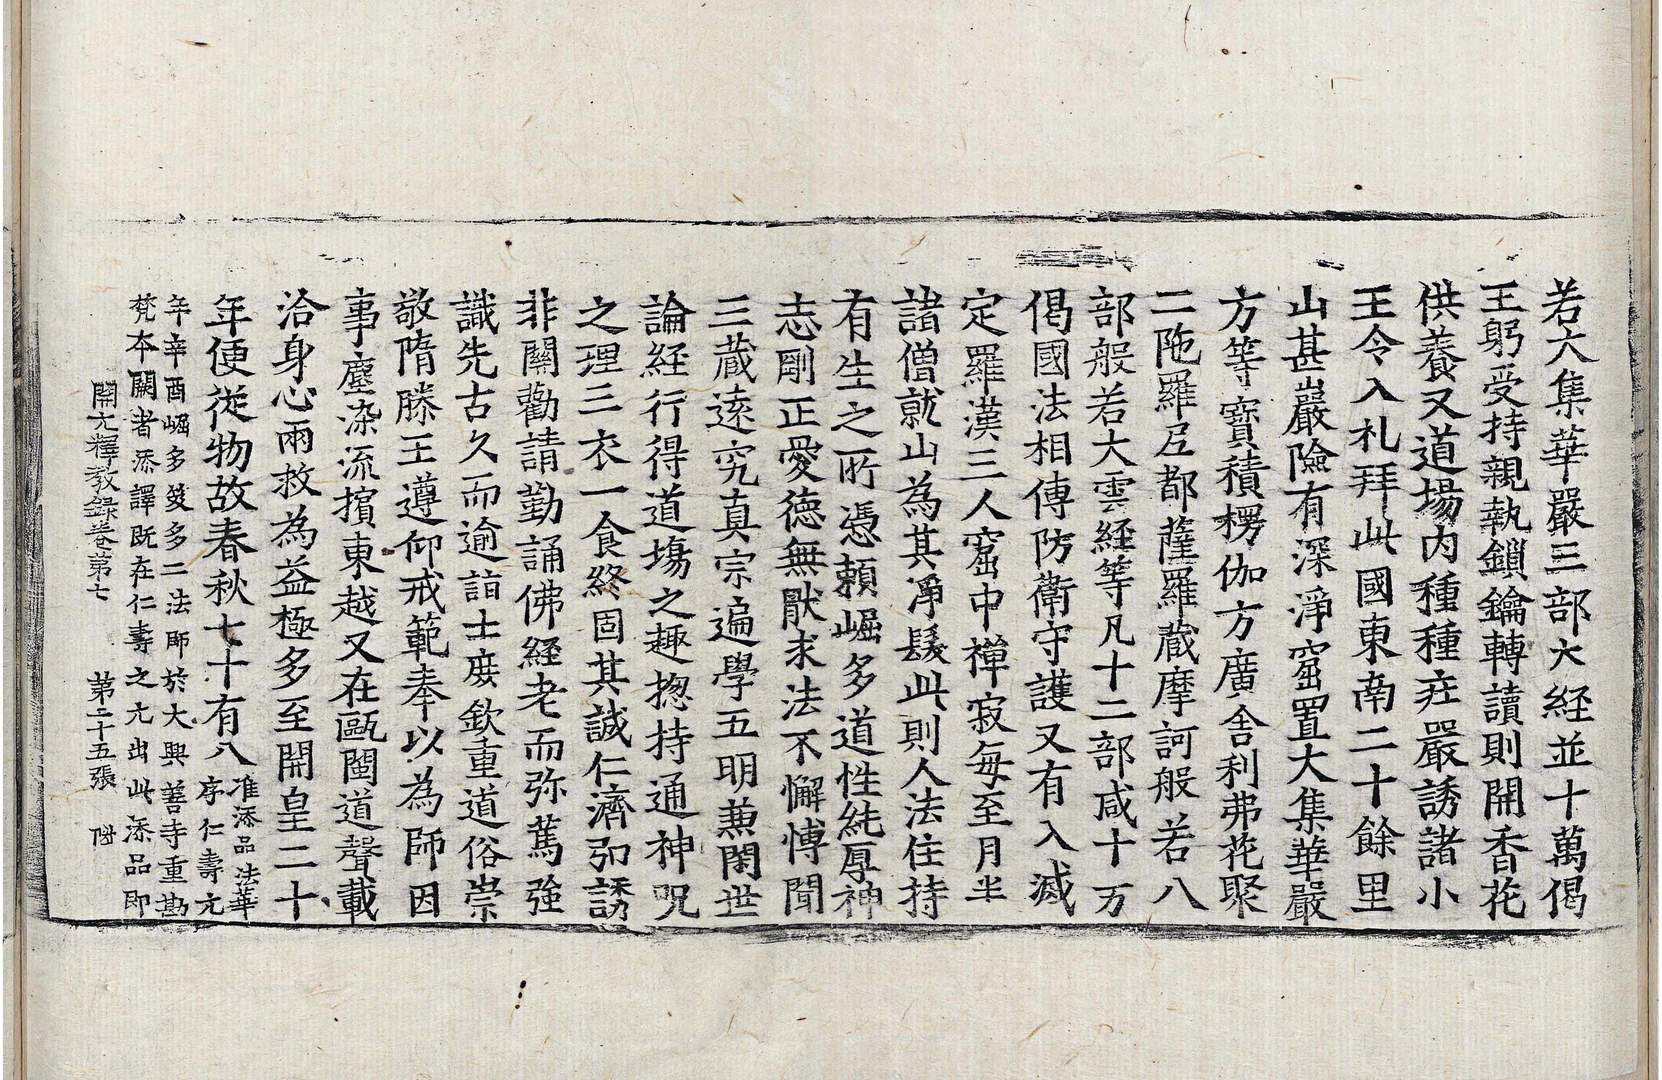 若大集華嚴三部大経並十萬偈
王躬受持親執鎖鑰轉讀則開香花
供養又道場内種種在嚴誘諸小
王令入札拜此國東南二十餘里
山甚巖險有深淨窟置大集華嚴
方等寳積楞伽方廣舎利弗花聚
二陁羅尼都薩羅蔵摩訶般若八
部般若大雲経等凡十二部咸十万
偈國法相傳防衛守護又有入滅
定羅漢三人窟中禪寂每至月半
諸僧就山為其淨髮此則人法住持
有生之所憑賴崛多道性純厚神
志剛正愛德無猒求法不懈慱聞
三蔵逺究真宗遍學五明兼閑世
論経行得道塲之趣揔持通神呪
之理三衣一食終固其誠仁濟弘誘
非關勸請勤誦佛経老而弥篤強
識先古久而逾詣士庻欽重道俗崇
敬隋滕王遵仰戒範奉以為師因
事塵染流擯東越又在甌閩道聲載
洽身心兩救為益極多至開皇二十
年便従物故春秋七十有八准添品法華
序仁壽元
年辛酉崛多笈多二法師於大興善寺重勘
梵本闕者添譯既在仁壽之元出此添品即
開元釋教録卷第七 第二十五張